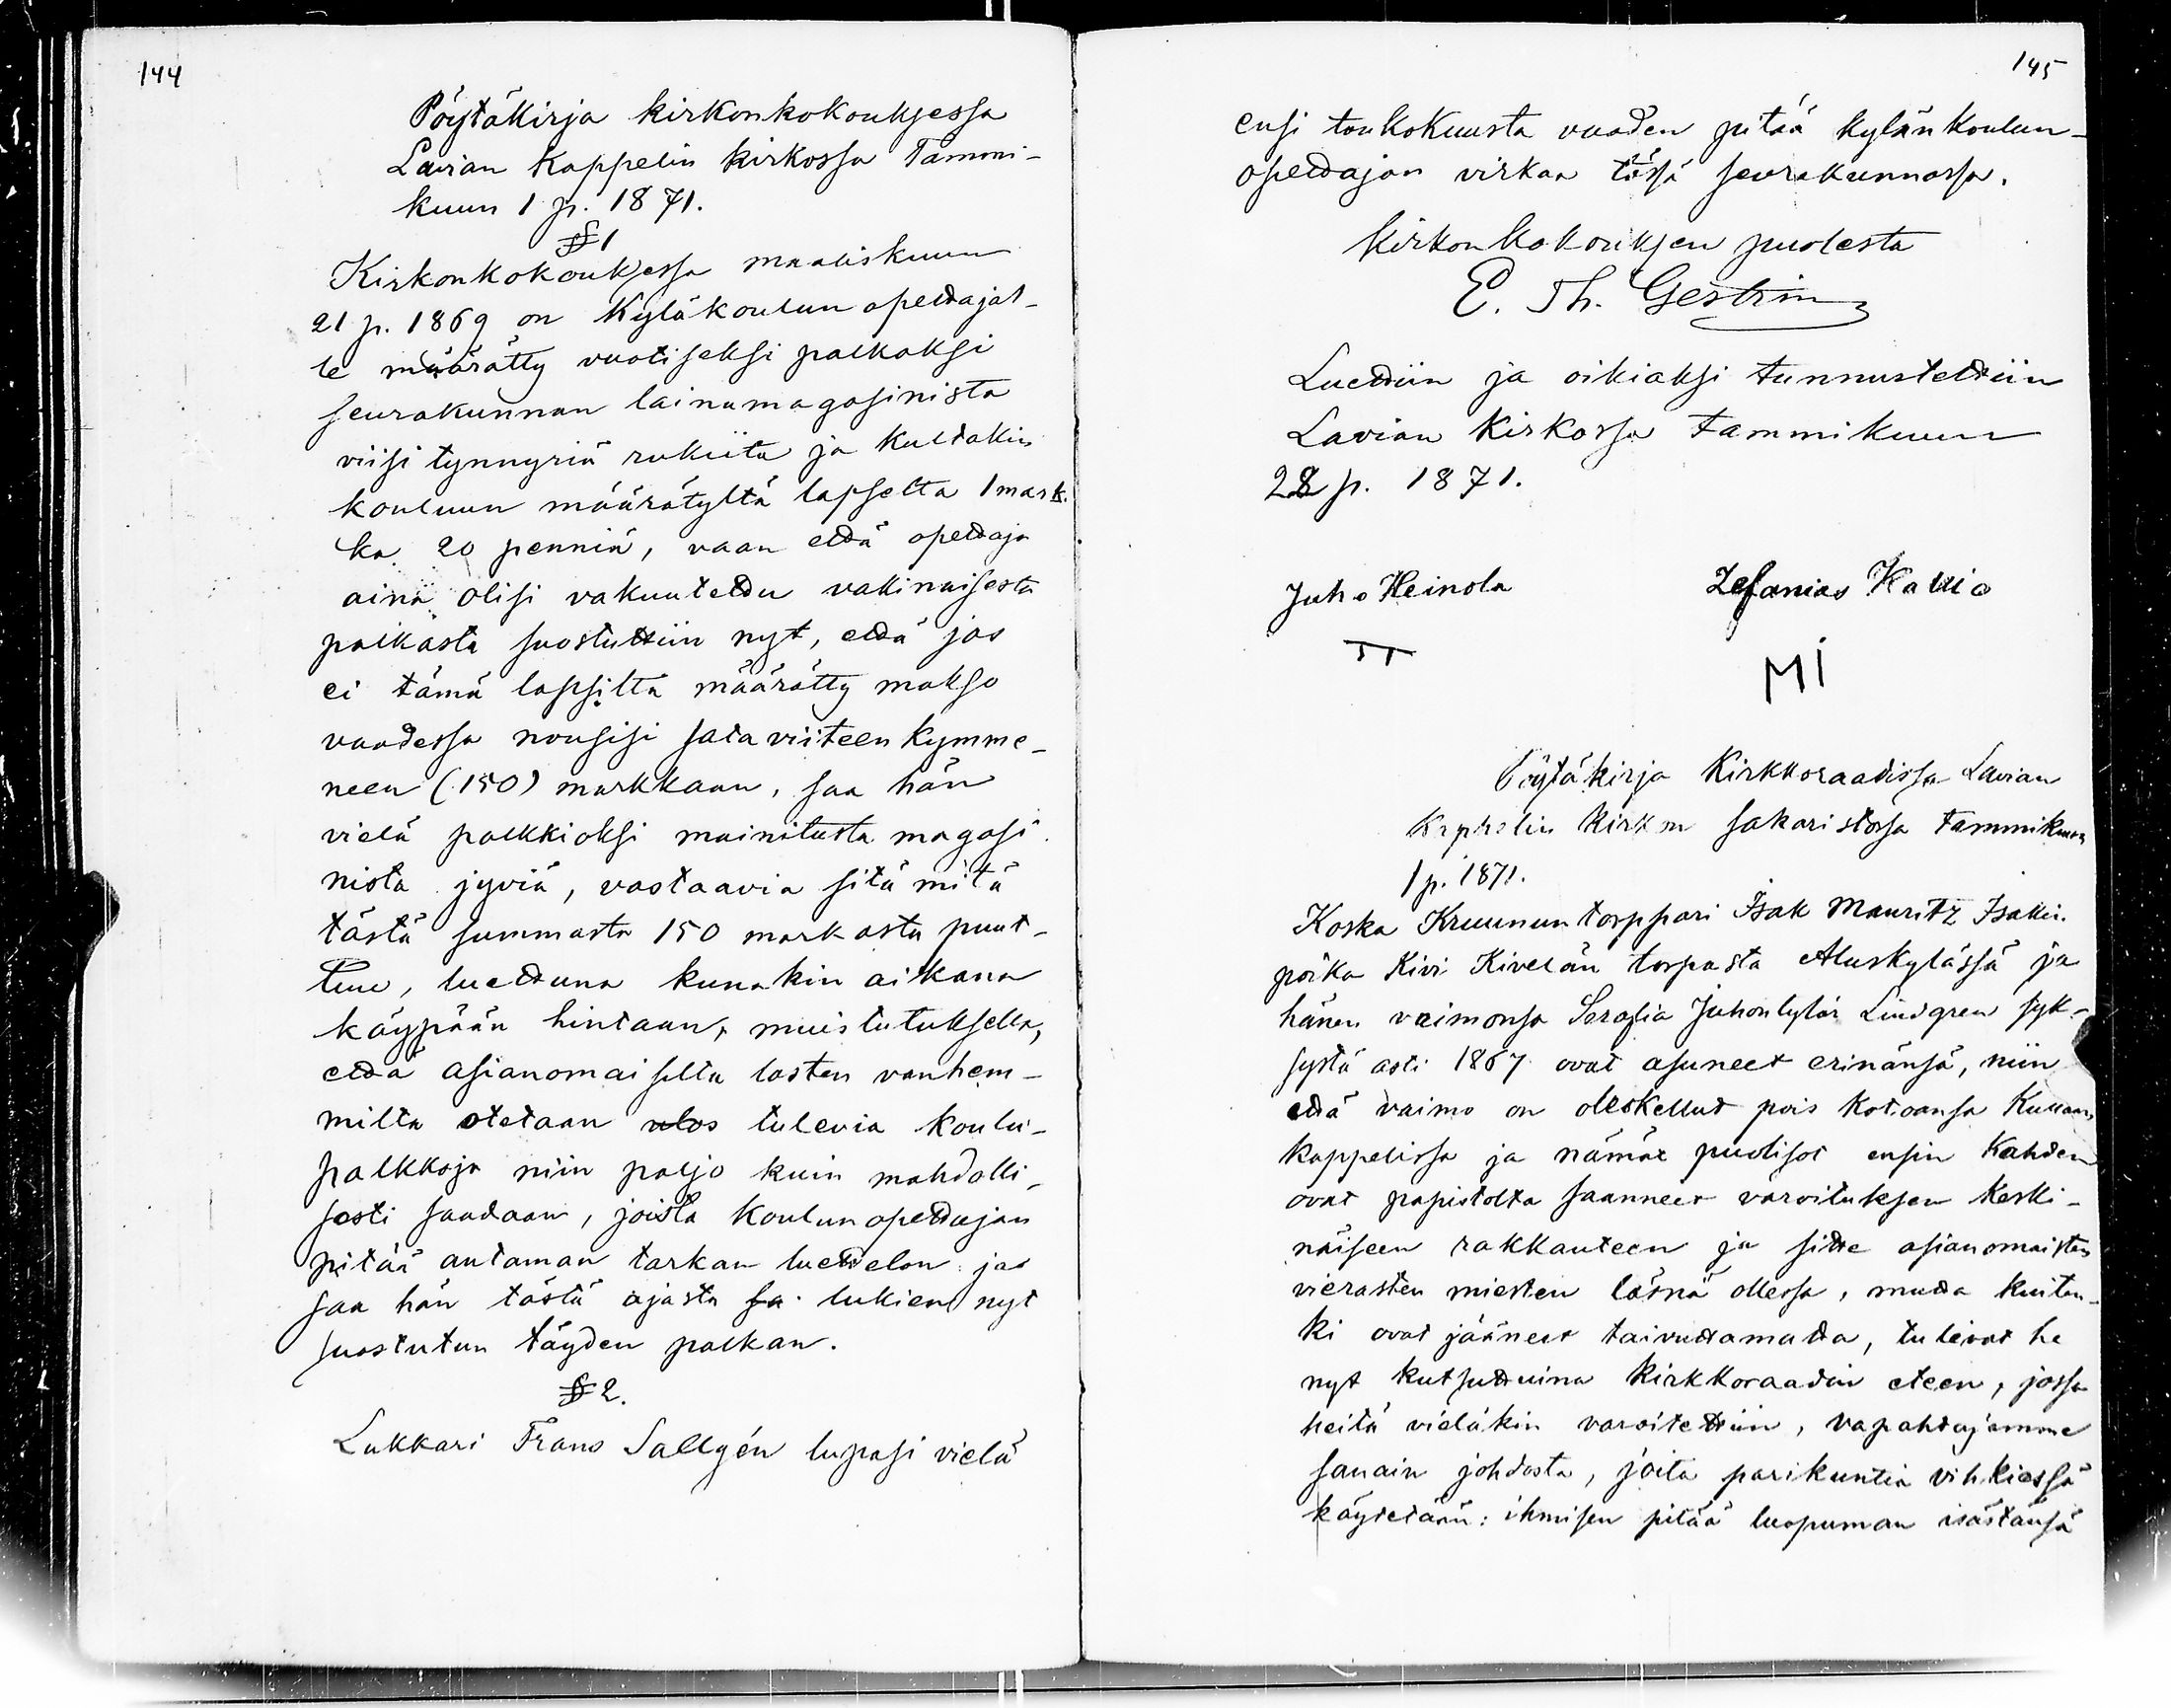 144
Pöytäkirja kirkonkokouksessa
Lavian Kappelin kirkossa Tammi-
kuun 1 p. 1871.
§ 1
Kirkonkokouksessa maaliskuun
21 p. 1869 on Kyläkoulun opettajal-
le määrätty vuotiseksi palkaksi
seurakunnan lainamagasinista
viisi tynnyriä rukiita ja kultakin
kouluun määrätyltä lapselta 1 mark.
ka 20 penniä, vaan että opettaja
aina olisi vakuutettu vakinaisesta
palkasta suostuttiin nyt, että jos
ei tämä lapsilta määrätty makso
vuodessa nousisi sataviiteenkymme-
neen (150) markkaan, saa hän
vielä palkkioksi mainitusta magasi-
nista jyviä, vastaavia sitä mitä
tästä summasta 150 markasta puut-
tuu, luettuna kunakin aikana
käypään hintaan, muistutuksella,
että asianomaisilta lasten vanhem-
milta otetaan ulos tulevia koulu-
palkkoja niin paljo kuin mahdolli-
sesti saadaan, joista Koulunopettajan
pitää antaman tarkan luettelon ja
saa hän tästä ajasta sa lukien nyt
suostutun täyden palkan.
§ 2.
Lukkari Frans Sallgén lupasi vielä
145
ensi toukokuusta vuoden pitää kylänkoulun-
opettajan virkaa tässä seurakunnassa.
Kirkonkokouksen puolesta
E. Th. Gestrin
Luettiin ja oikiaksi tunnustettiin
Lavian Kirkossa Tammikuun
28 p. 1871.
Juho Heinola Zefanias Kallio
MI
Pöytäkirja Kirkkoraadissa Lavian
Kappelin Kirkon sakaristossa Tammikuun
1 p. 1871.
Koska Kruunun torppari Isak Mauritz Isakin
poika Kivi Kivelän torpasta Aluskylässä ja
hänen vaimonsa Serafia Juhontytär Lindgren syk-
systä asti 1867 ovat asuneet erinänsä, niin
että vaimo on oleskellut pois kotoansa Kullaan
kappelissa ja nämät puolisot ensin Kahden
ovat papistolta saanneet varoituksen keski-
näiseen rakkauteen ja sitte asianomaisten
vierasten miesten läsnä ollessa, mutta kuiten-
ki ovat jääneet taivuttamatta, tulivat he
nyt kutsuttuina Kirkkoraadin eteen, jossa
heitä vieläkin varoitettiin, vapahtajamme
sanain johdosta, joita parikuntia vihkiessä
käytetään: ihmisen pitää luopuman isästänsä